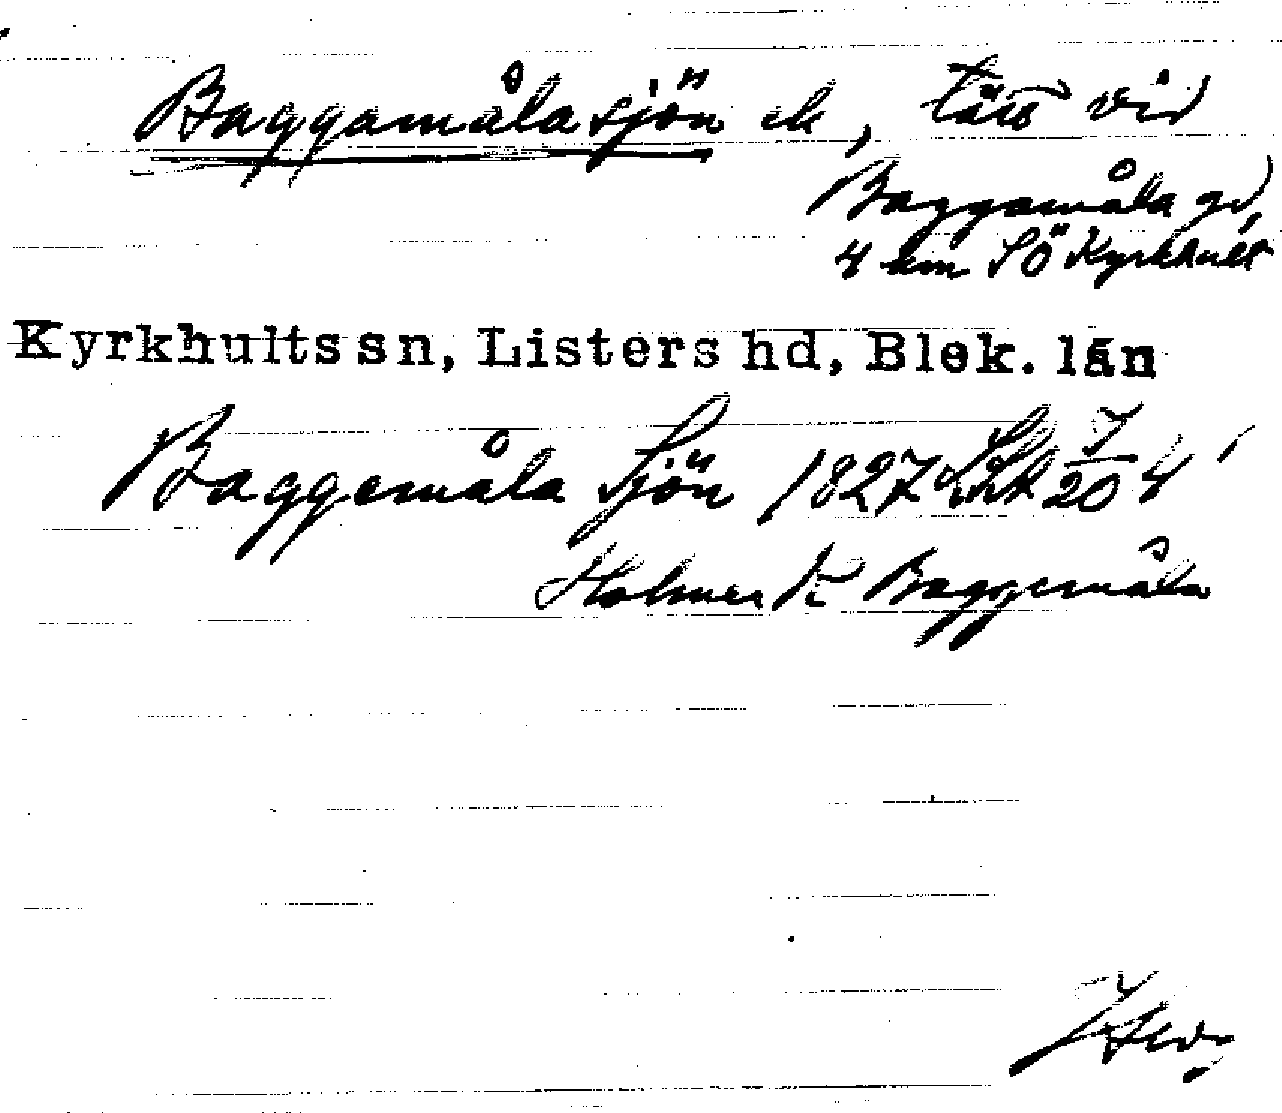 Baggamålasjön ek, tätt vid
Baggamåla gd,
4 km SÖ Kyrkhult
Kyrkhults sn, Listers hd, Blek. län
Baggemåla Sjön 1827 4
Holmen K Baggemåla